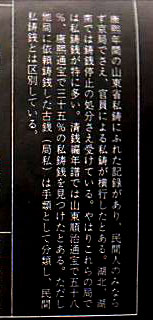 康熙年間の山東省私鋳にふれた記録があり、民間人のみなら
ず京局でさえ、官員による私鋳が横行したとある。湖北、湖
南では鋳銭停止の処分さえ受けている。やはりこれらの局で
は私鋳銭が特に多い。清銭編年譜では山東順治通宝で五十八
％、康熙通宝で三十五％の私鋳銭を見つけたとある。ただし
他局に依頼鋳銭した古銭（局私）は手類として分類し、民間
私鋳銭とは区別している。